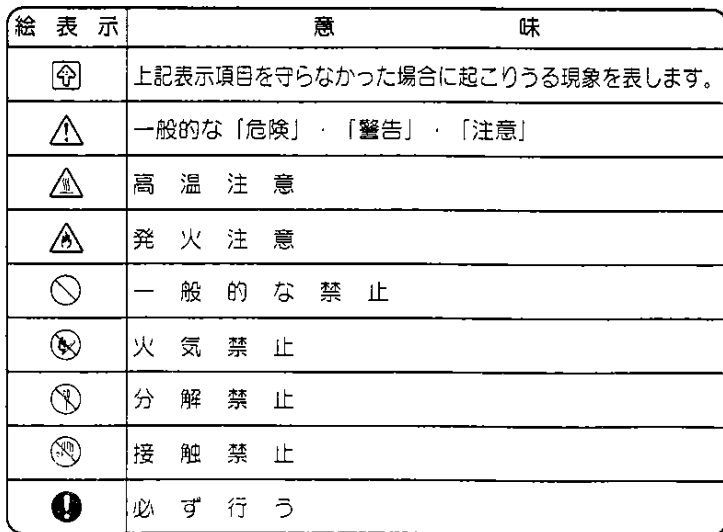 絵 表 示 意 味
上記表示項目を守らなかった場合に起こりうる現象を表します。
一般的な「危険」・「警告」・「注意」
高 温 注 意
発 火 注 意
一 般 的 な 禁 止
火 気 禁 止
分 解 禁 止
接 触 禁 止
必 ず 行 う